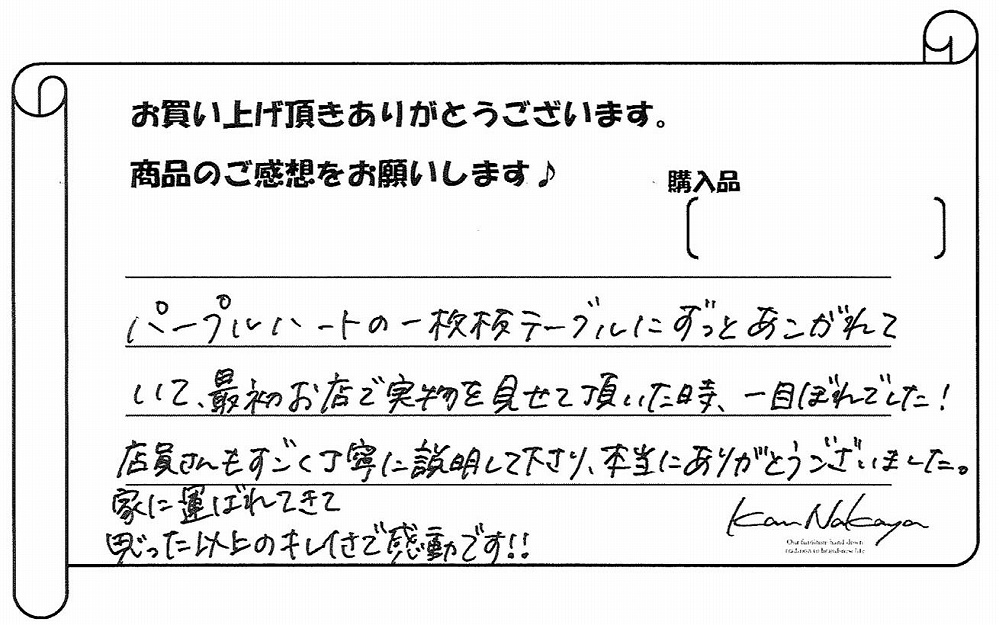 お買い上げ頂きありがとうございます。
商品のご感想をお願いします♪
購入品
パープルハートの一枚板テーブルにずっとあこがれて
いて、最初お店で実物を見せて頂いた時、一目ぼれでした！
店員さんもすごく丁寧に説明して下さり、本当にありがとうございました。
家に運ばれてきて
思った以上のキレイさで感動です!!
Kan Nakaya
Our furniture hand down
tradition to brand-new life